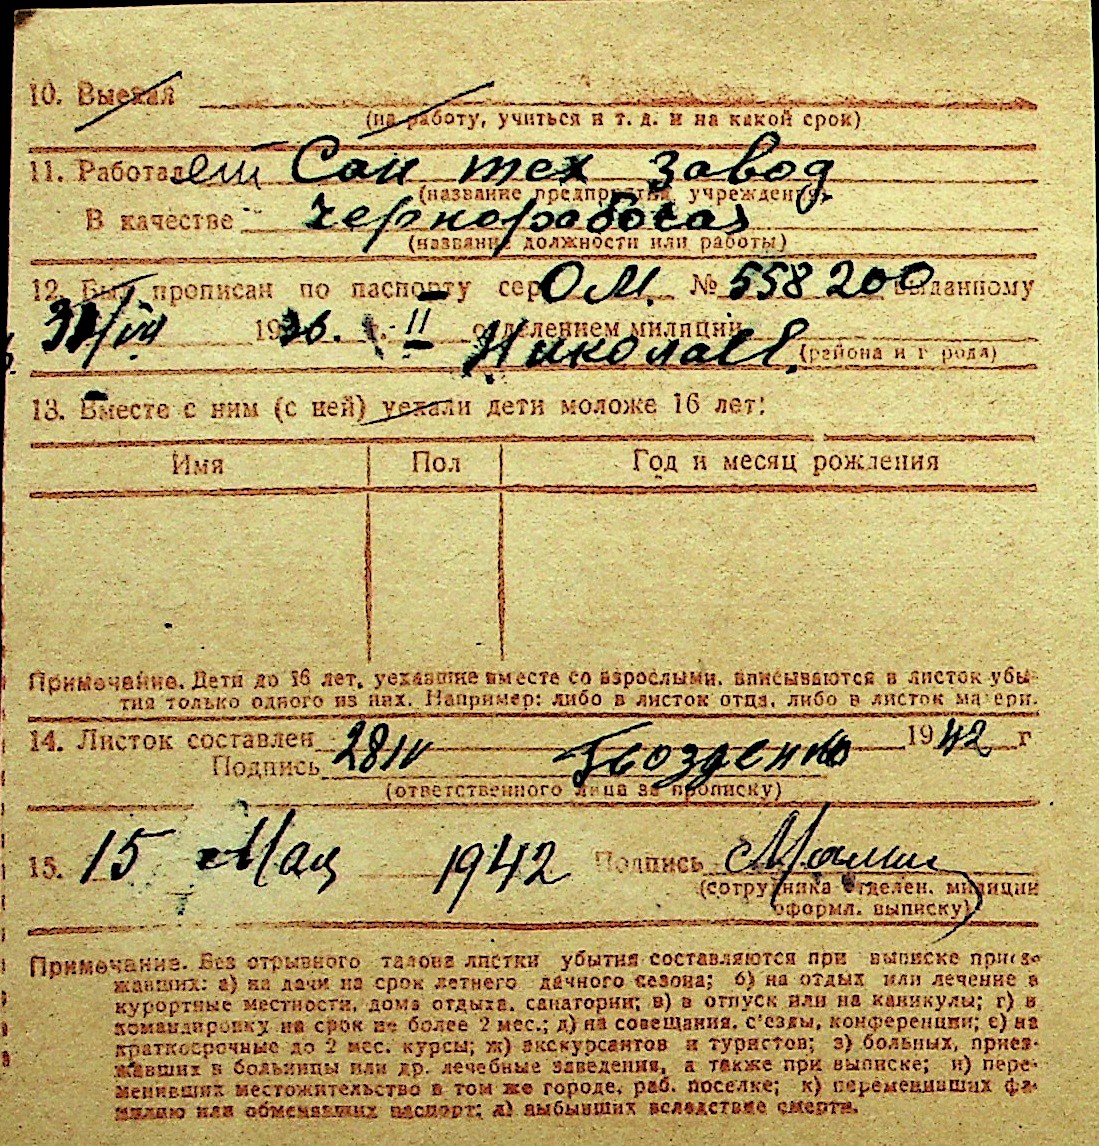 10. Выехал
(на работу, учиться и т. д. и на какой срок)
11. Работал ет Сан тех завод
(название предприятия, учреждения)
В качестве чернорабочая
(название должности или работы)
12. Был прописан по паспорту сер ОМ. № 558200 выданному
1936. г. II отделением милиции
Николаев. (района и города)
13. Вместе с ним (с ней) уехали дети моложе 16 лет:
Имя Пол Год и месяц рождения
Примечание. Дети до 16 лет, уехавшие вместе со взрослыми, вписываются в листок убы-
тия только одного из них. Например: либо в листок отца, либо в листок матери.
14. Листок составлен 28 IV 1942 г
Подпись Гвозденко
(ответственного лица за прописку)
15. 15 Мая 1942 Подпись
(сотрудника отделен. милиции
оформл. выписку)
Примечание. Без отрывного талона листки убытия составляются при выписке приез-
жавших: а) на дачи на срок летнего дачного сезона; б) на отдых или лечение в
курортные местности, дома отдыха, санатории; в) в отпуск или на каникулы; г) в
командировку на срок не более 2 мес.; д) на совещания, с'езды, конференции; е) на
краткосрочные до 2 мес. курсы; ж) экскурсантов и туристов; з) больных, приез-
жавших в больницы или др. лечебные заведения, а также при выписке; и) пере-
менивших местожительство в том же городе, раб. поселке; к) переменивших фа-
милию или обменявших паспорт; л) выбывших вследствие смерти.